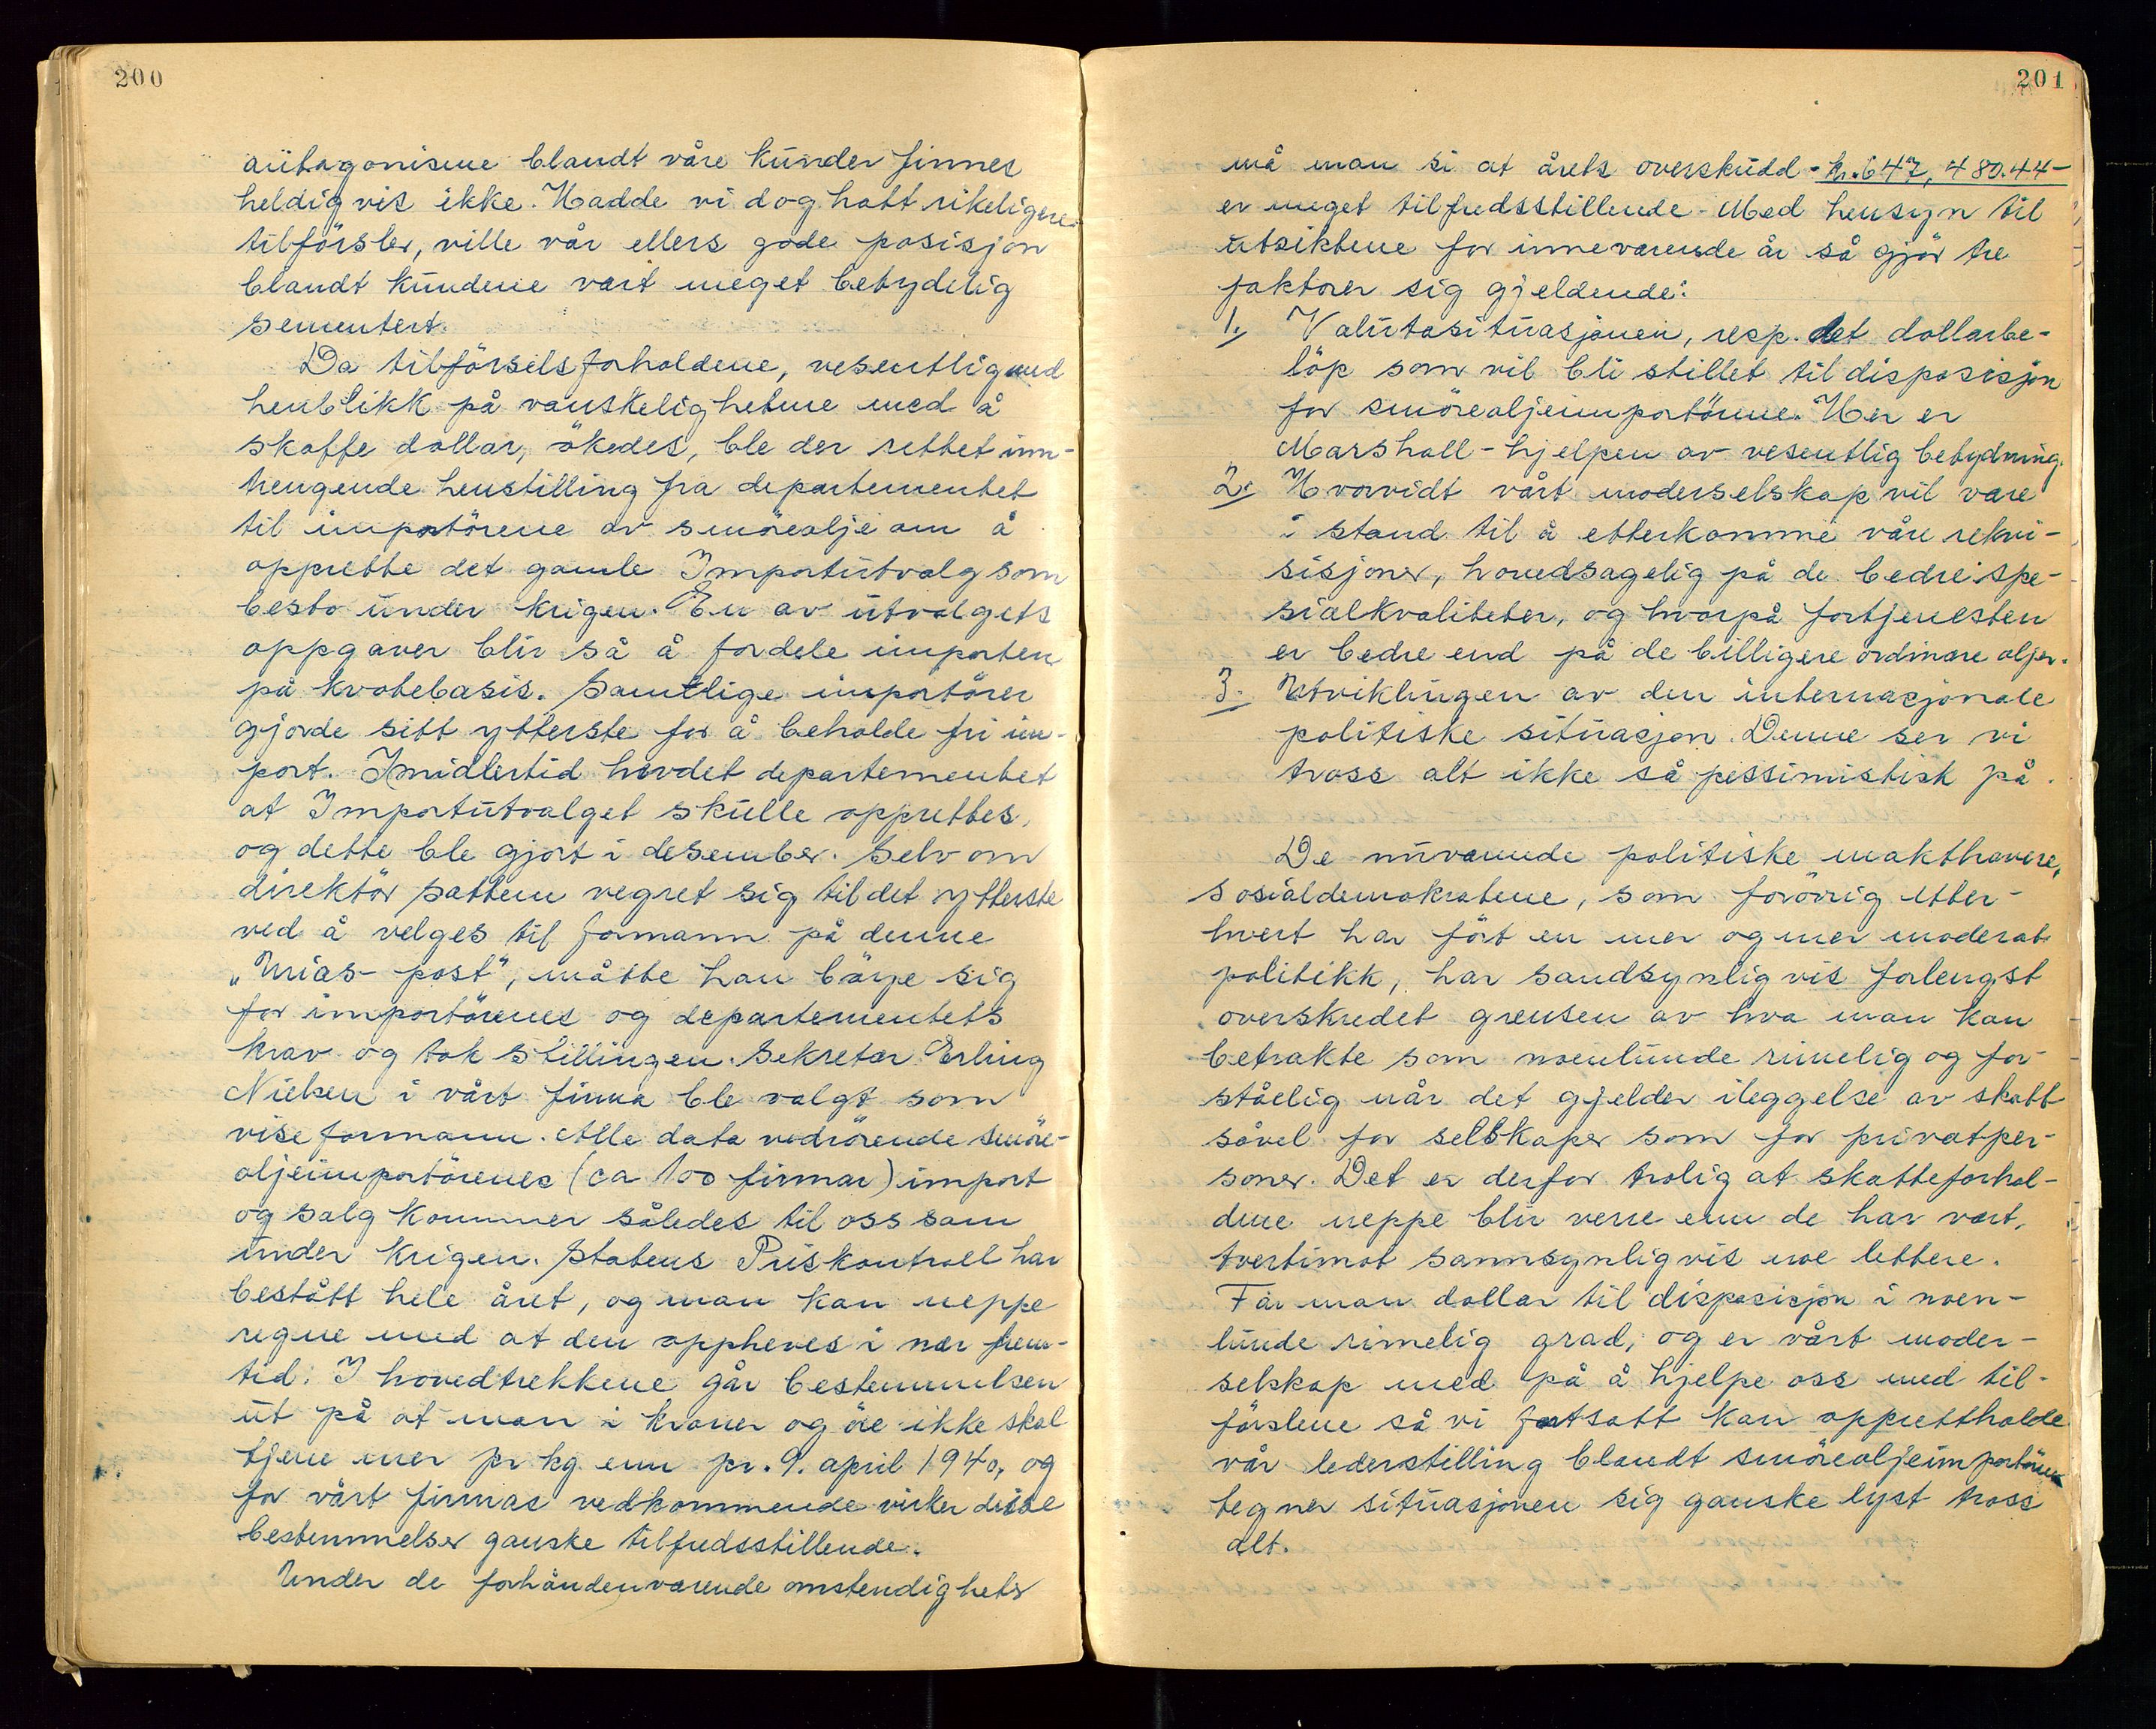 200
antagonisme blandt våre kunder finnes
heldigvis ikke. Hadde vi dog hatt rikeligere
tilförsler, ville vår ellers gode posisjon
blandt kundene vært meget betydelig
sementert.
Da tilförselsforholdene, vesentlig med
henblikk på vanskelighetene med å
skaffe dollar, ökedes, ble der rettet inn-
trengende henstilling fra departementet
til importörene av smöreolje om å
opprette det gamle Importutvalg som
besto under krigen. En av utvalgets
oppgaver blir så å fordele importen
på kvotebasis. Samtlige importörer
gjorde sitt ytterste for å beholde fri im-
port. Imidlertid hevdet departementet
at Importutvalget skulle opprettes,
og dette ble gjort i desember. Selv om
direktör Sættem vegret sig til det ytterste
ved å velges til formann på denne
„Urias-post", måtte han böye sig
for importörenes og departementets
krav og tok stillingen. Sekretær Erling
Nielsen i vårt firma ble valgt som
viseformann. Alle data vedrörende smöre-
oljeimportörenes (ca 100 firmaer) import
og salg kommer således til oss som
under krigen. Statens Priskontroll har
bestått hele året, og man kan neppe
regne med at den oppheves i nær frem-
tid. I hovedtrekkene går bestemmelsen
ut på at man i kroner og öre ikke skal
tjene mer pr kg enn pr. 9. april 1940, og
for vårt firmas vedkommende virker disse
bestemmelser ganske tilfredsstillende.
Under de forhåndenværende omstendigheter
201
må man si at årets overskudd - kr. 647,480.44 -
er meget tilfredsstillende. Med hensyn til
utsiktene for inneværende år så gjör tre
faktorer sig gjeldende:
1. Valutasituasjonen, resp. det dollarbe-
löp som vil bli stillet til disposisjon
for smöreoljeimportörene. Her er
Marshall-hjelpen av vesentlig betydning.
2. Hvorvidt vårt moderselskap vil være
i stand til å etterkomme våre rekvi-
sisjoner, hovedsagelig på de bedre spe-
sialkvaliteter, og hvorpå fortjenesten
er bedre end på de billigere ordinære oljer.
3. Utviklingen av den internasjonale
politiske situasjon. Denne ser vi
tross alt ikke så pessimistisk på.
De nuværende politiske makthavere,
sosialdemokratene, som forövrig etter-
hvert har fört en mer og mer moderat
politikk, har sandsynligvis forlengst
overskredet grensen av hva man kan
betrakte som noenlunde rimelig og for-
ståelig når det gjelder ileggelse av skatt
såvel for selskaper som for privatper-
soner. Det er derfor trolig at skatteforhol-
dene neppe blir verre enn de har vært,
tvertimot sannsynligvis noe lettere.
Får man dollar til disposisjon i noen-
lunde rimelig grad, og er vårt moder-
selskap med på å hjelpe oss med til-
förslene så vi fortsatt kan opprettholde
vår lederstilling blandt smöreoljeimportörene
tegner situasjonen sig ganske lyst tross
alt.